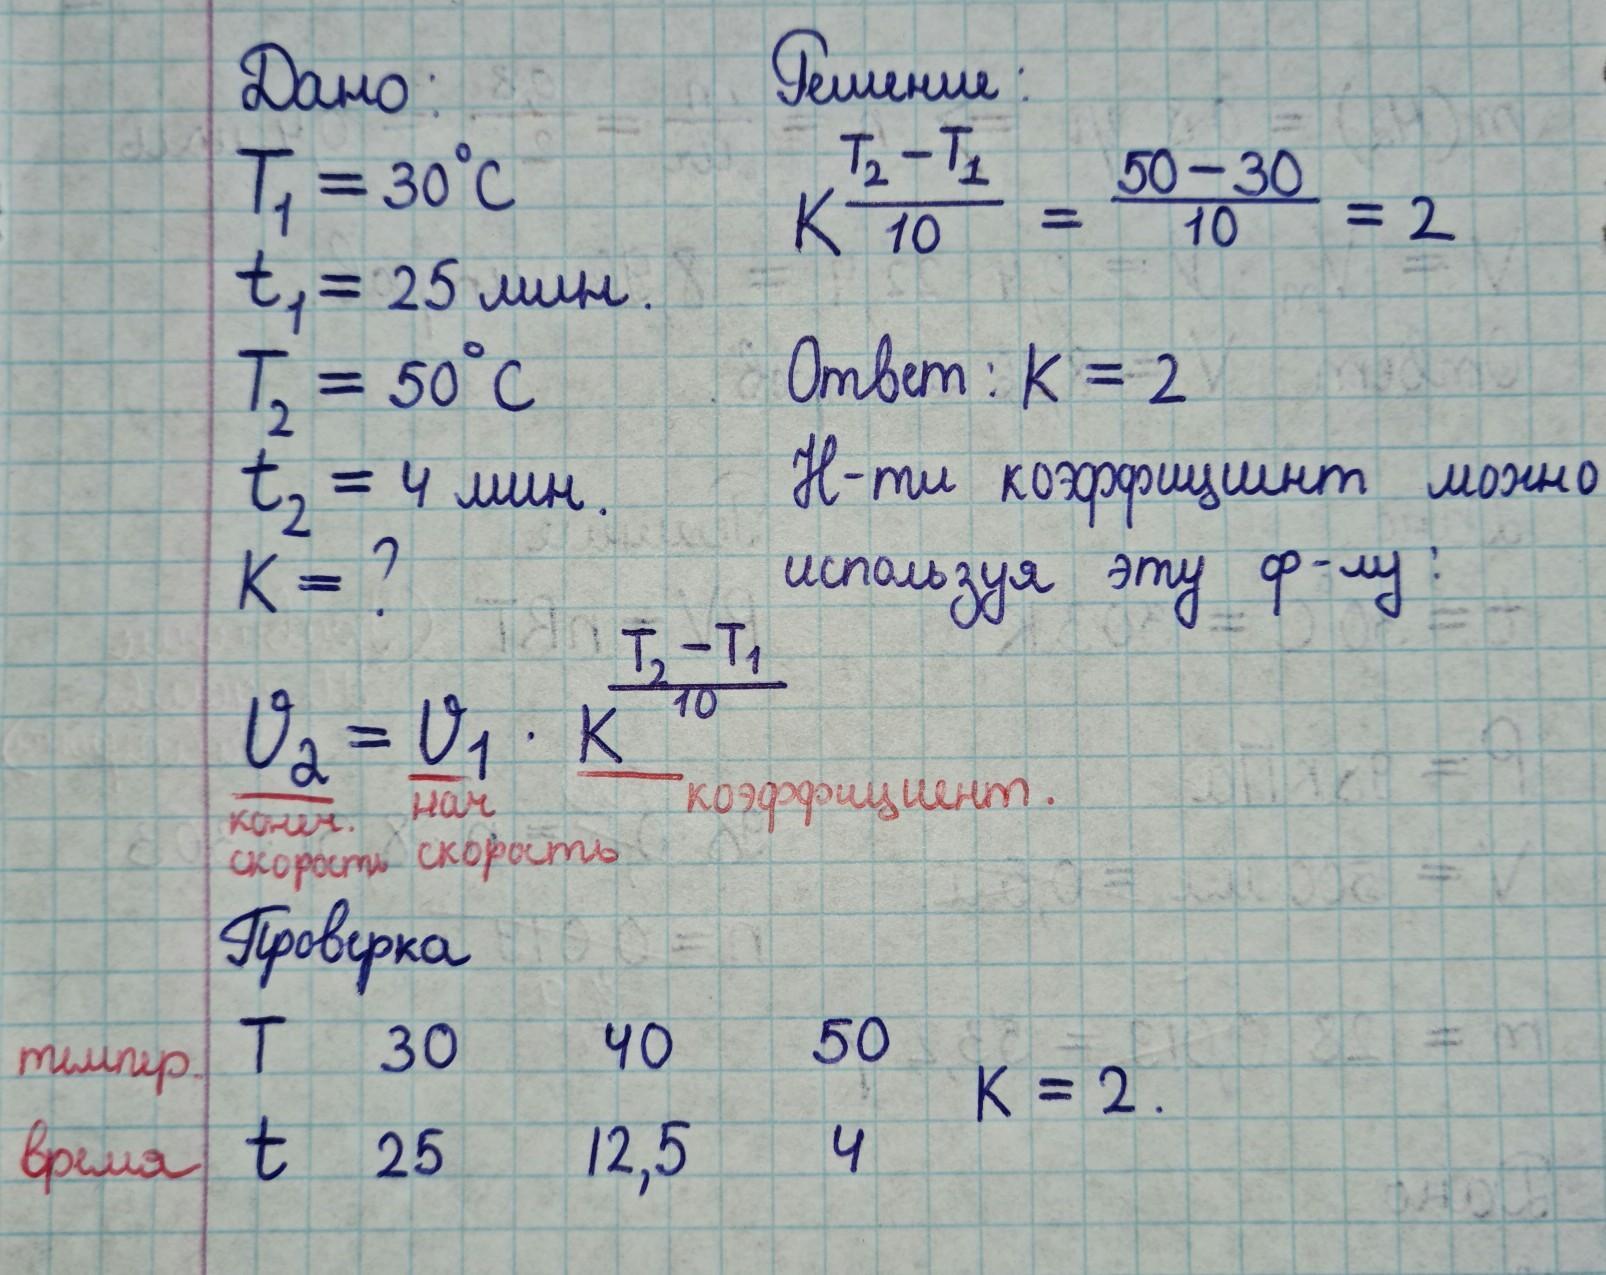 Дано:
T₁ = 30°C
t₁ = 25 мин.
T₂ = 50°C
t₂ = 4 мин.
K = ?
Решение:
K^((T₂ – T₁)/10) = (50 – 30)/10 = 2
Ответ: K = 2
Н-ти коэффициент можно
используя эту ф-лу:
υ₂ = υ₁ · K^((T₂ – T₁)/10)
конеч. скорость
нач скорость
коэффициент.
Проверка
темпер. T 30 40 50
время t 25 12,5 4
K = 2.